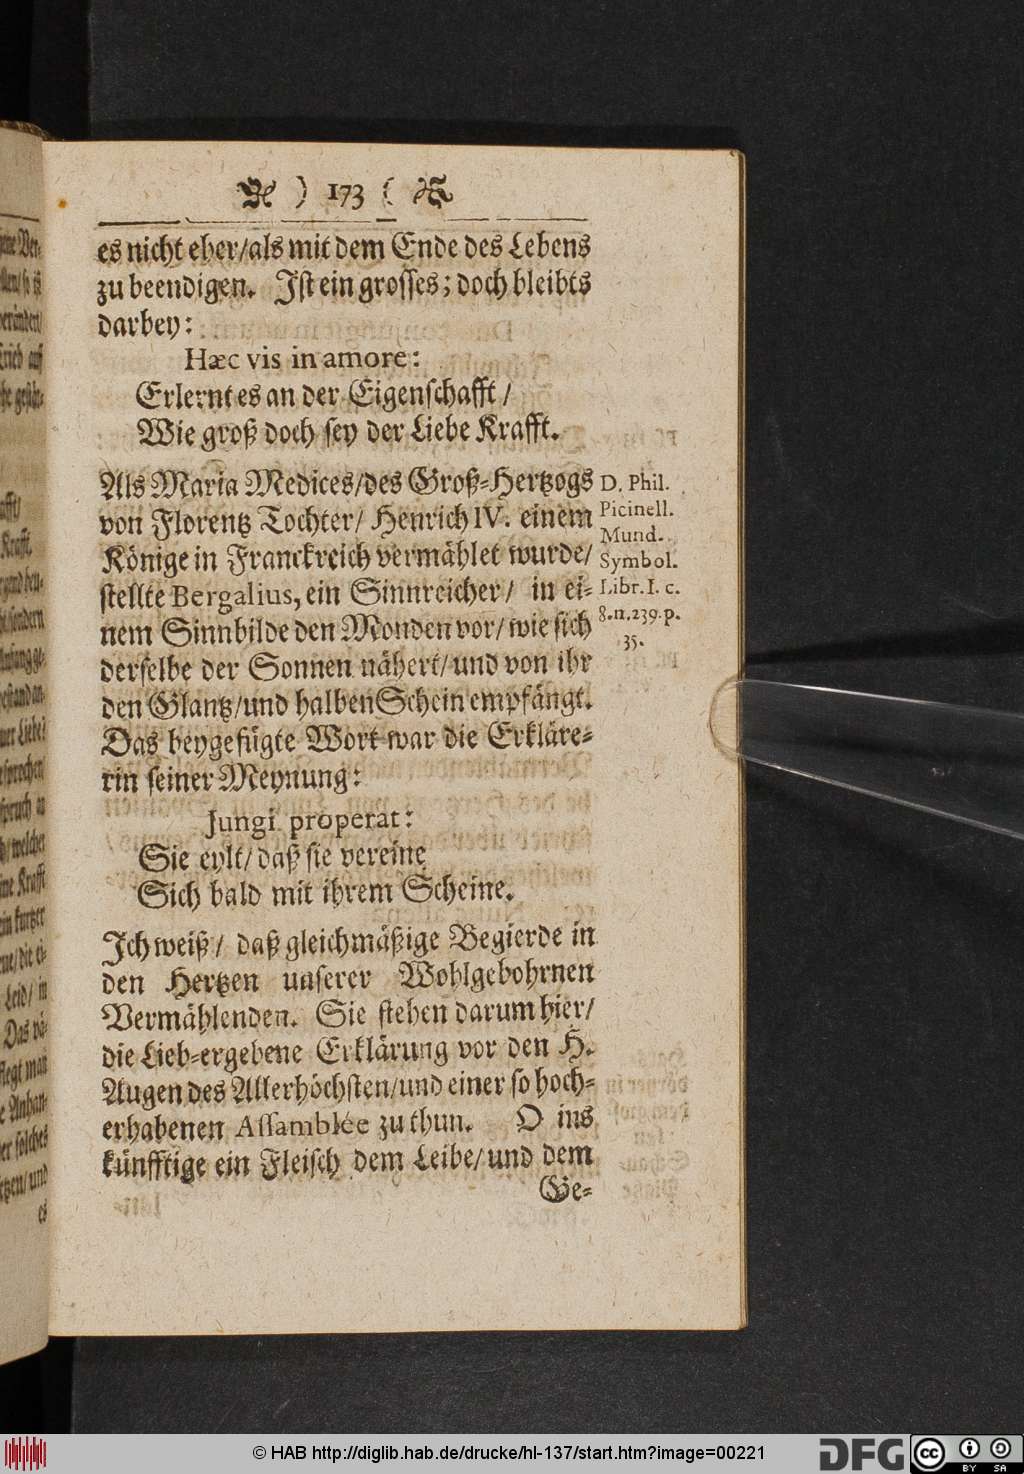 ) 173 (
es nicht eher/als mit dem Ende des Lebens
zu beendigen. Ist ein grosses; doch bleibts
darbey:
Hæc vis in amore:
Erlernt es an der Eigenschafft /
Wie groß doch sey der Liebe Krafft.
Als Maria Medices/des Groß-Hertzogs
von Florentz Tochter/ Henrich IV. einem
Könige in Franckreich vermählet wurde/
stellte Bergalius, ein Sinnreicher/ in ei-
nem Sinnbilde den Monden vor/ wie sich
derselbe der Sonnen nähert/und von ihr
den Glantz/und halben Schein empfängt.
Das beygefügte Wort war die Erkläre-
rin seiner Meynung:
Jungi properat:
Sie eylt/daß sie vereine
Sich bald mit ihrem Scheine.
Ich weiß/ daß gleichmäßige Begierde in
den Hertzen unserer Wohlgebohrnen
Vermählenden. Sie stehen darum hier/
die Lieb-ergebene Erklärung vor den H.
Augen des Allerhöchsten/und einer so hoch-
erhabenen Assamblée zu thun. O ins
künfftige ein Fleisch dem Leibe/und dem
Ge-
D. Phil.
Picinell.
Mund.
Symbol.
Libr. I. c.
8. n. 239. p.
35.
© HAB http://diglib.hab.de/drucke/hl-137/start.htm?image=00221
DFG
cc BY SA